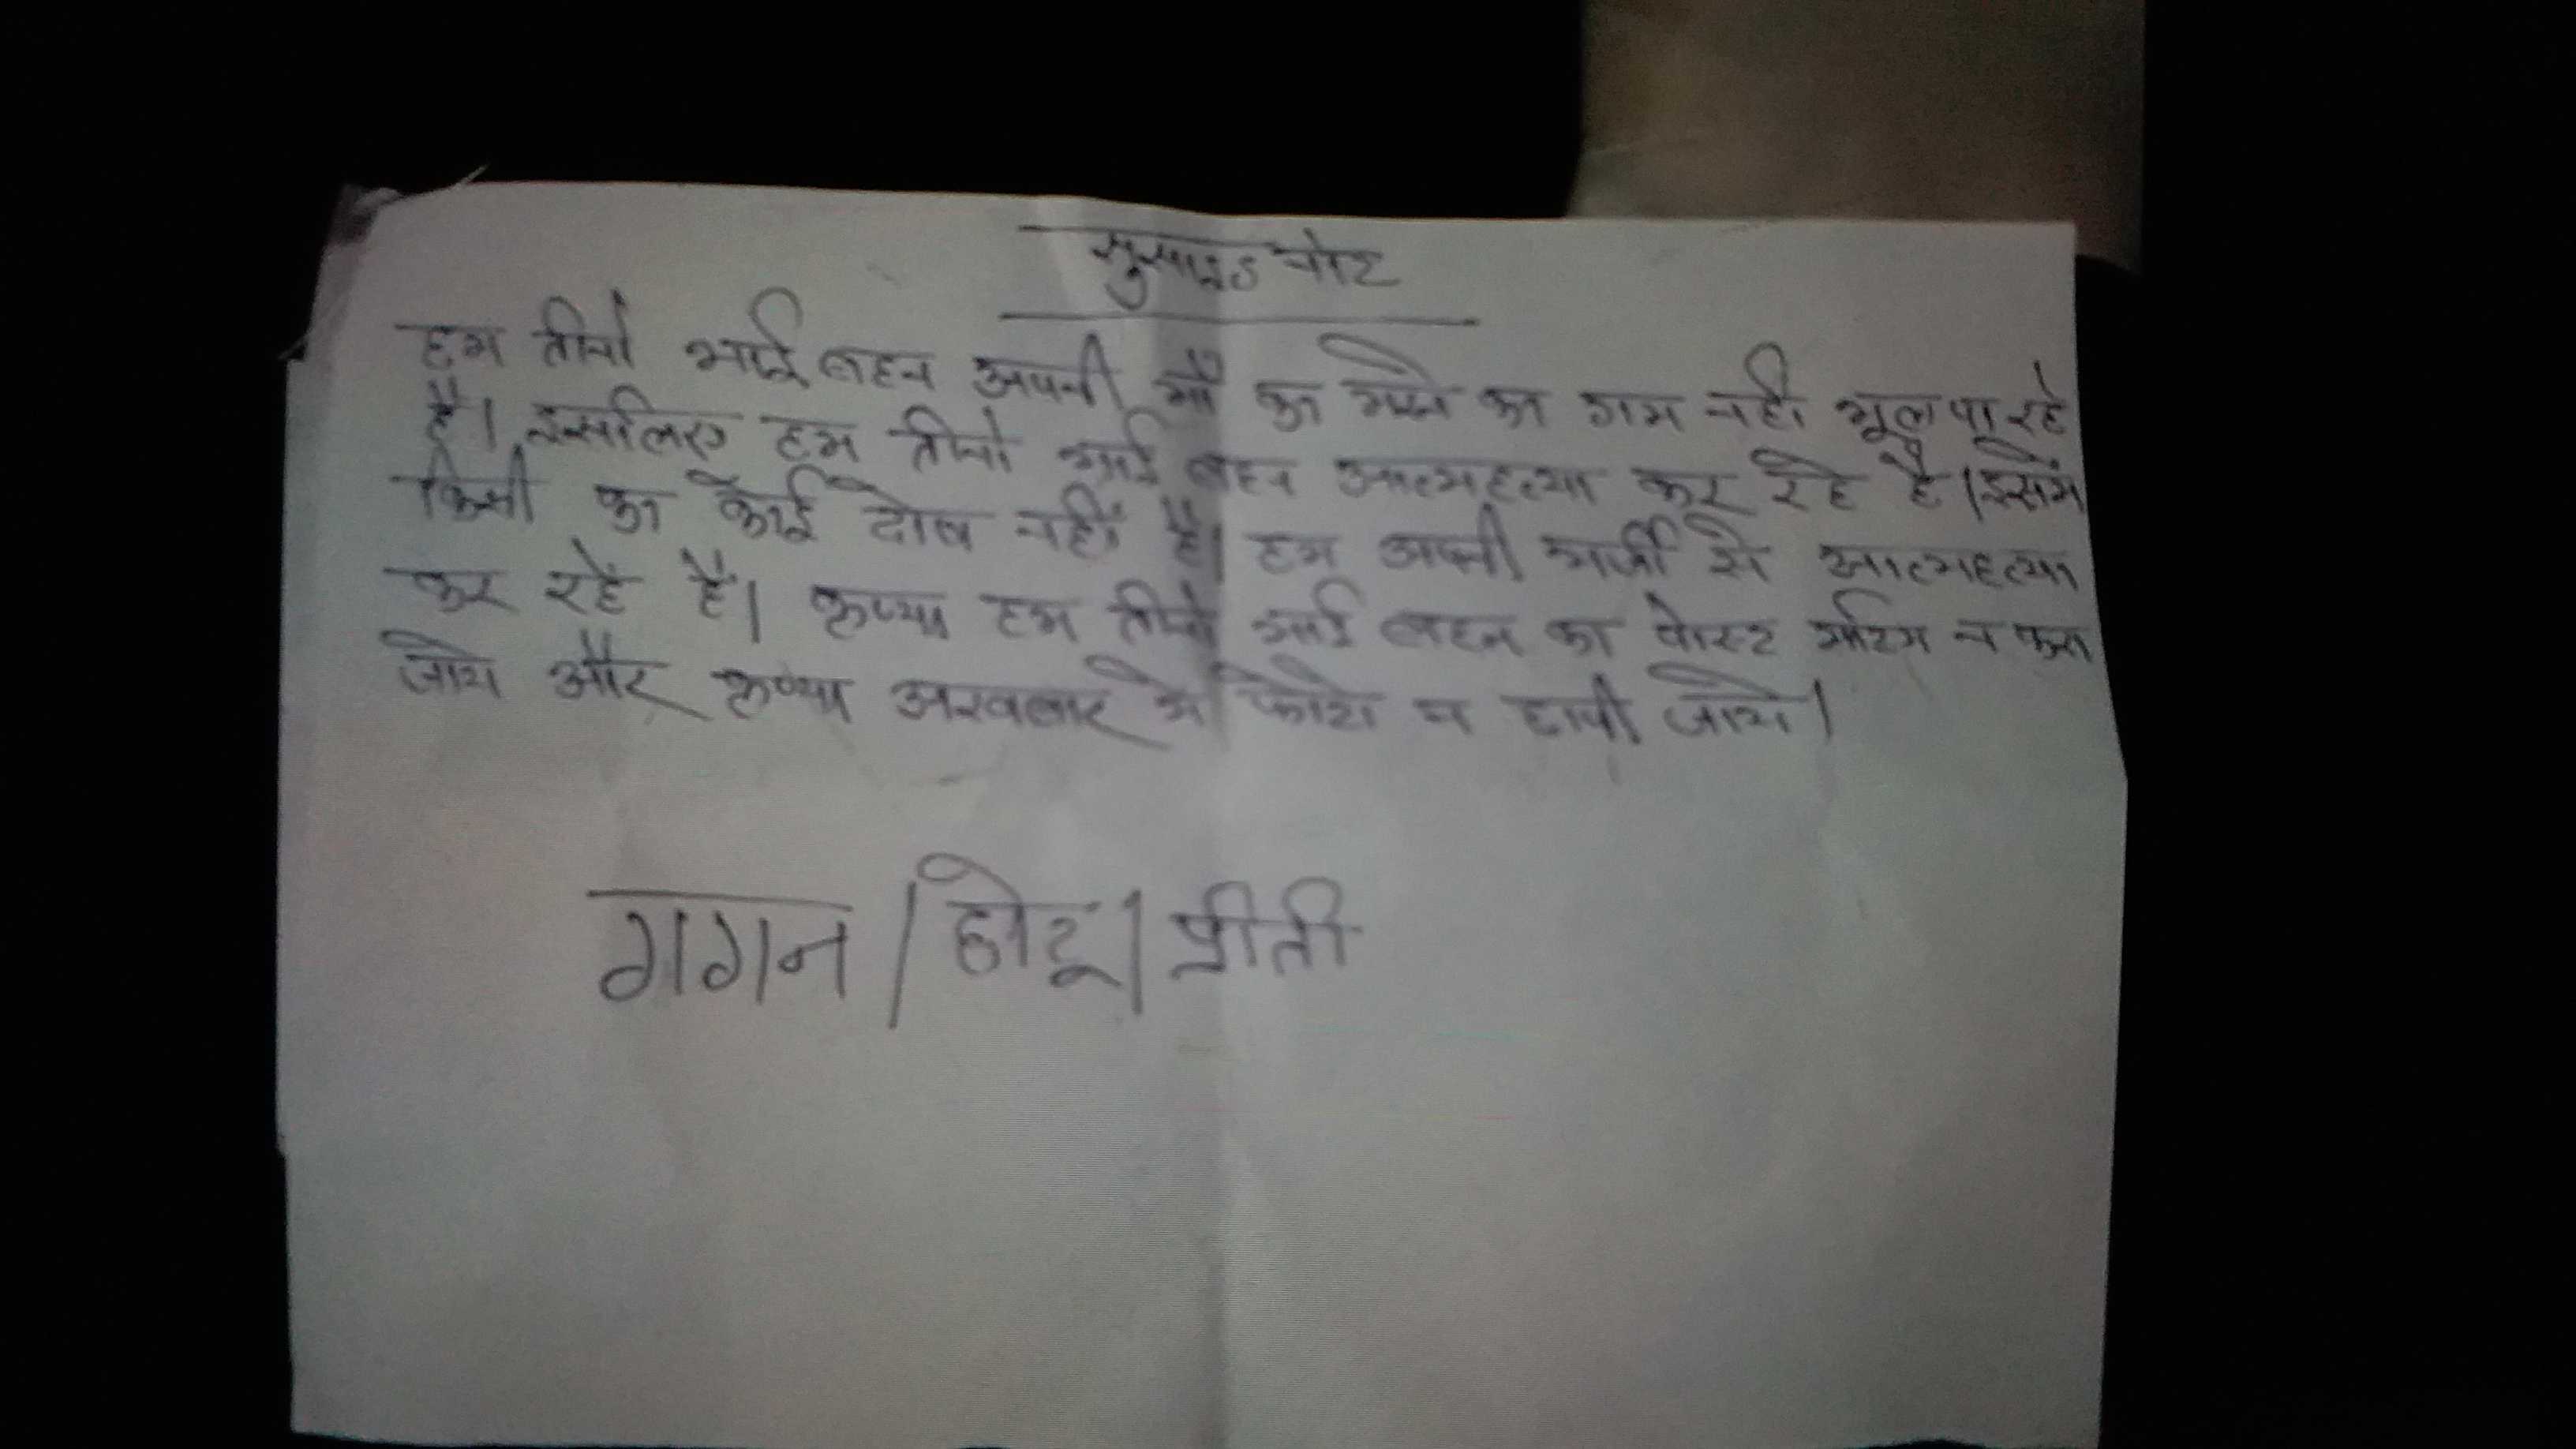 सुसाइड नोट
हम तीनो भाई बहन अपनी माँ का मरने का गम नही भूल पा रहे
है। इसलिए हम तीनो भाई बहन आत्महत्या कर रहे है। इसमें
किसी का कोई दोष नहीं है। हम अपनी मर्जी से आत्महत्या
कर रहे है। कृप्या हम तीनो भाई बहन का पोस्ट मार्टम न करा
जाये और कृप्या अखबार मे फोटो न छापी जाये।
गगन / छोटू / प्रीती